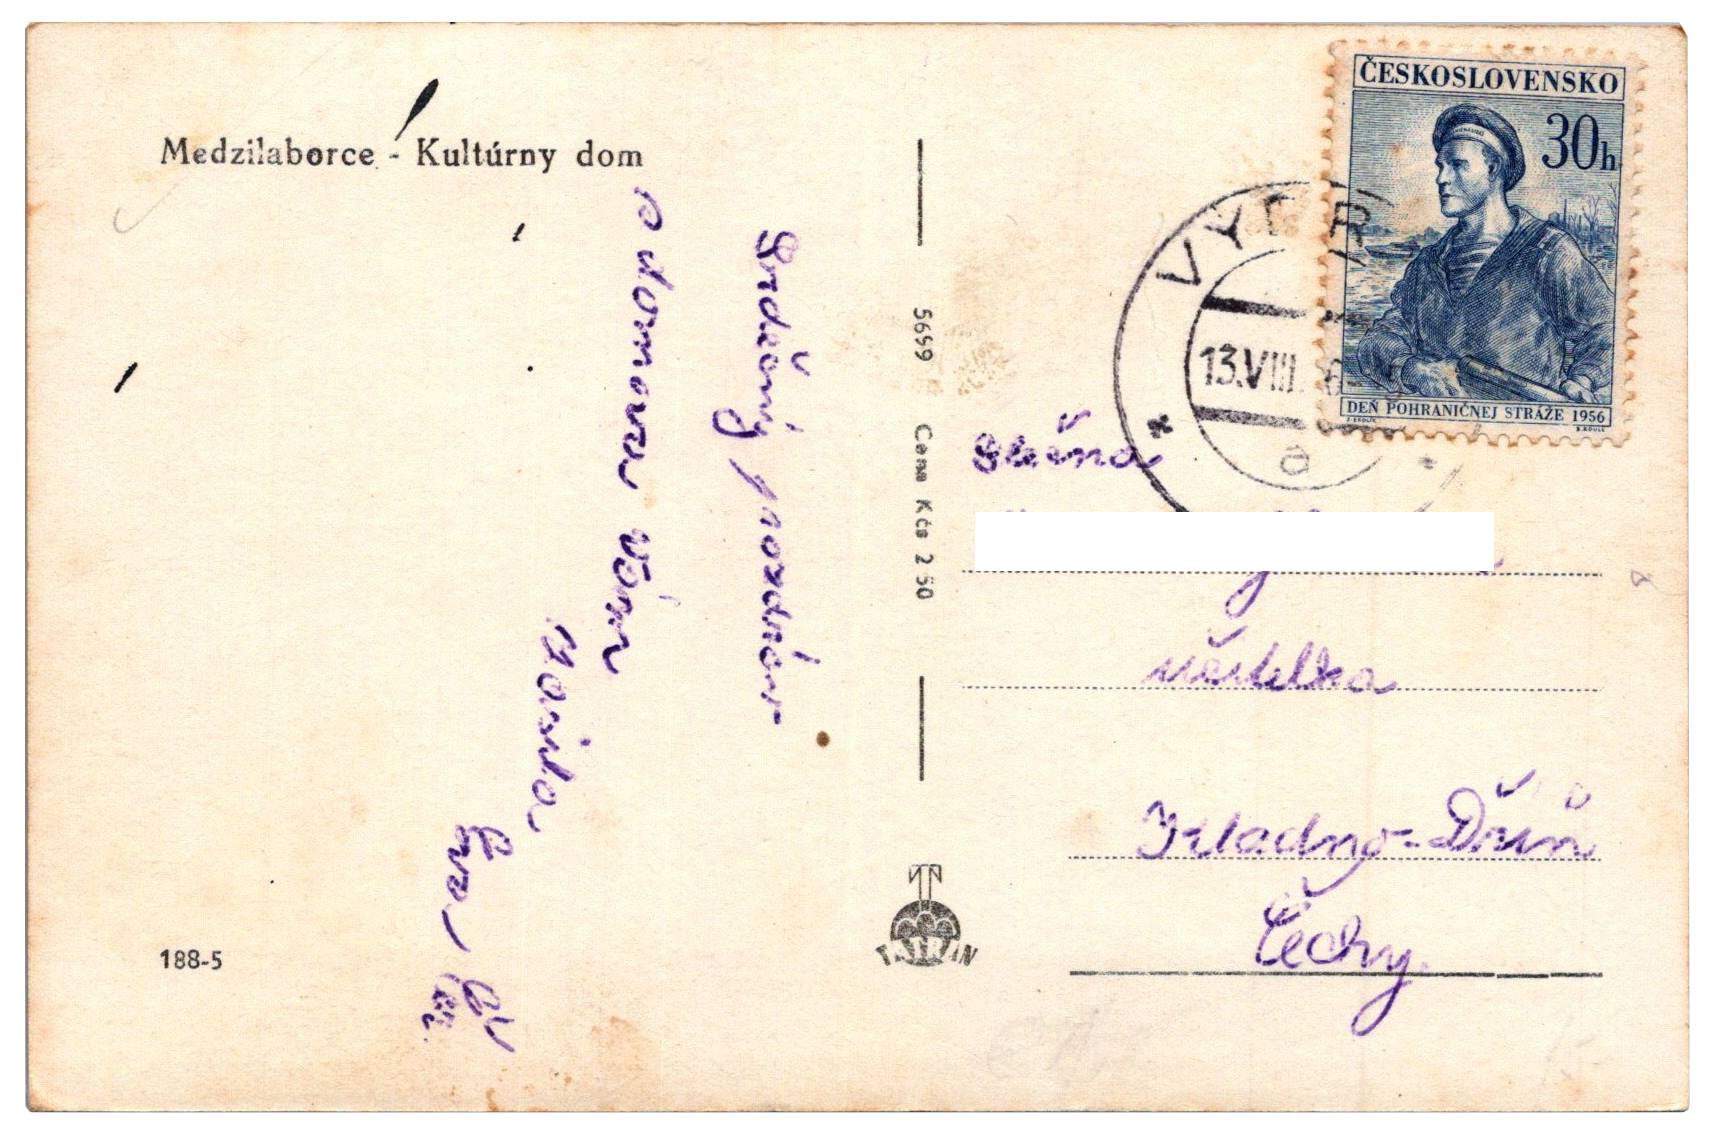 Medzilaborce - Kultúrny dom
Srdečný pozdrav
z domova Vám
Eva
188-5
5699 Cena Kčs 2 50
TATRAN
ČESKOSLOVENSKO
30h
DEŇ POHRANIČNEJ STRÁŽE 1956
13.VIII.
a
Slečna
učitelka
Kladno-Dříň
Čechy